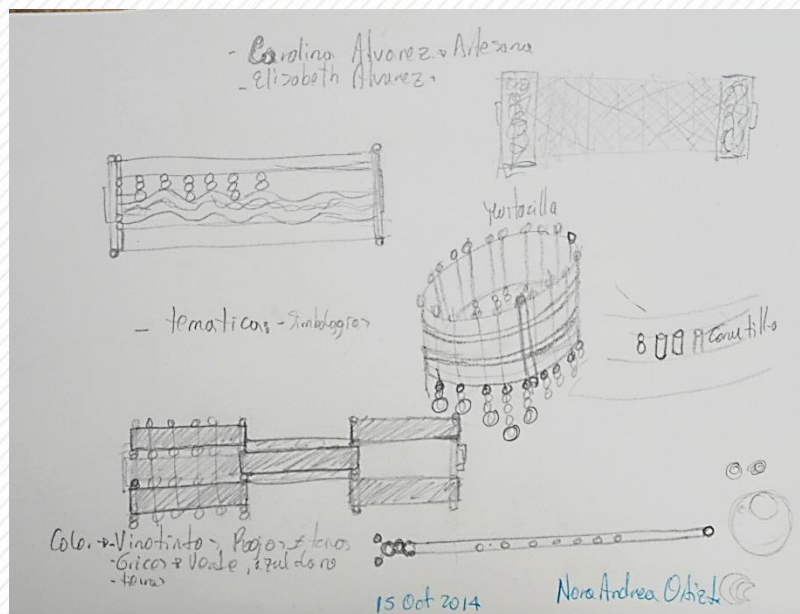 - Carolina Alvarez. Artesana
- Elisabeth Alvarez.
- tematicas - Simbologias
Canutillo
Color → Vinotinto, Rojos
- Grices Verde, azul
15 Oct 2014
Nora Andrea Ortiz